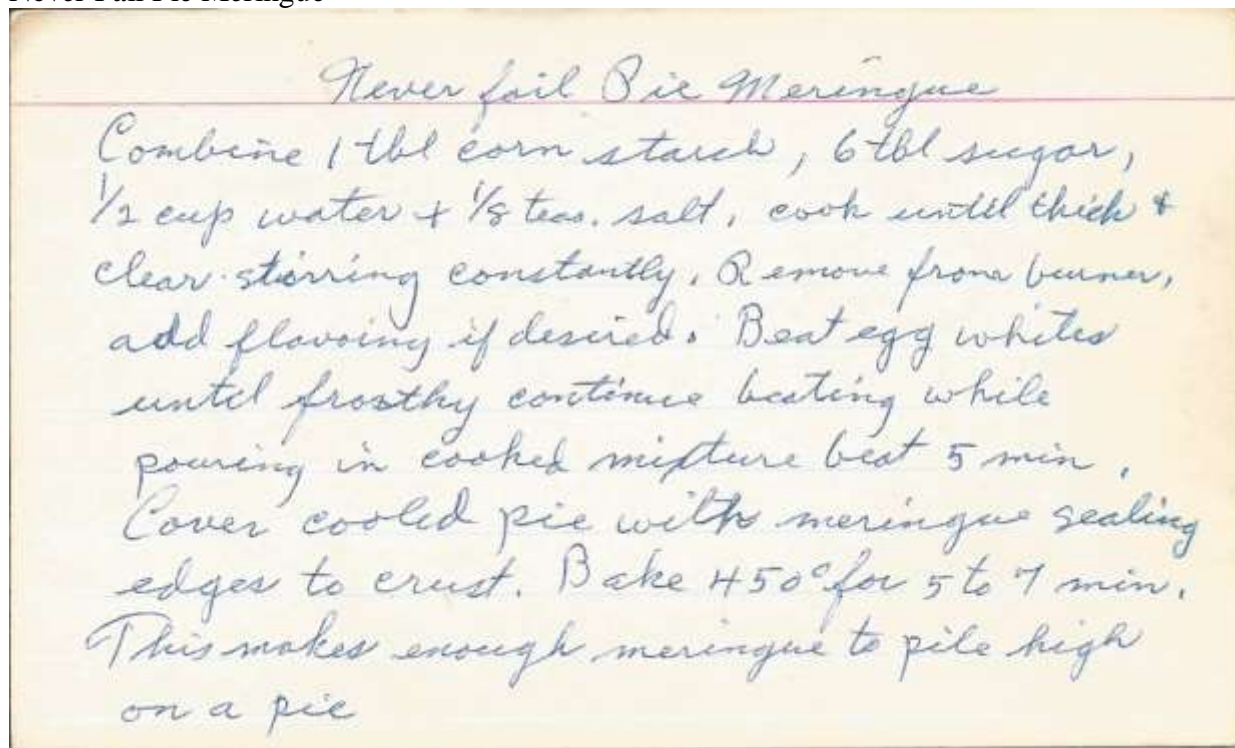 Never Fail Pie Meringue
Never fail Pie Meringue
Combine 1 tbl corn starch, 6 tbl sugar,
1/2 cup water + 1/8 teas. salt, cook until thick &
clear stirring constantly. Remove from burner,
add flavoing if desired. Beat egg whites
until frosthy continue beating while
pouring in cooked mixture beat 5 min.
Cover cooled pie with meringue sealing
edges to crust. Bake 450° for 5 to 7 min.
This makes enough meringue to pile high
on a pie